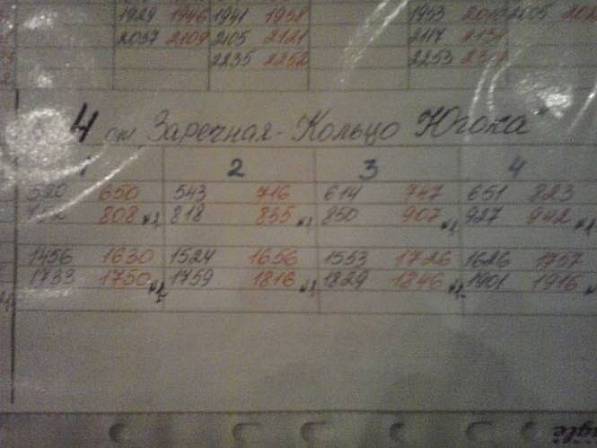 1929 1946 1941 1958 1953 2010 2105
2037 2109 2105 2121 2117
2235 2252 2253
4 "Заречная - Кольцо Югока"
1 2 3 4
520 650 543 716 614 747 651 823
808 к2 818 835 850 907 927 942
1456 1630 1524 1656 1553 1726 1626 1757
1733 1750 к2 1759 1816 1829 1846 1901 1916